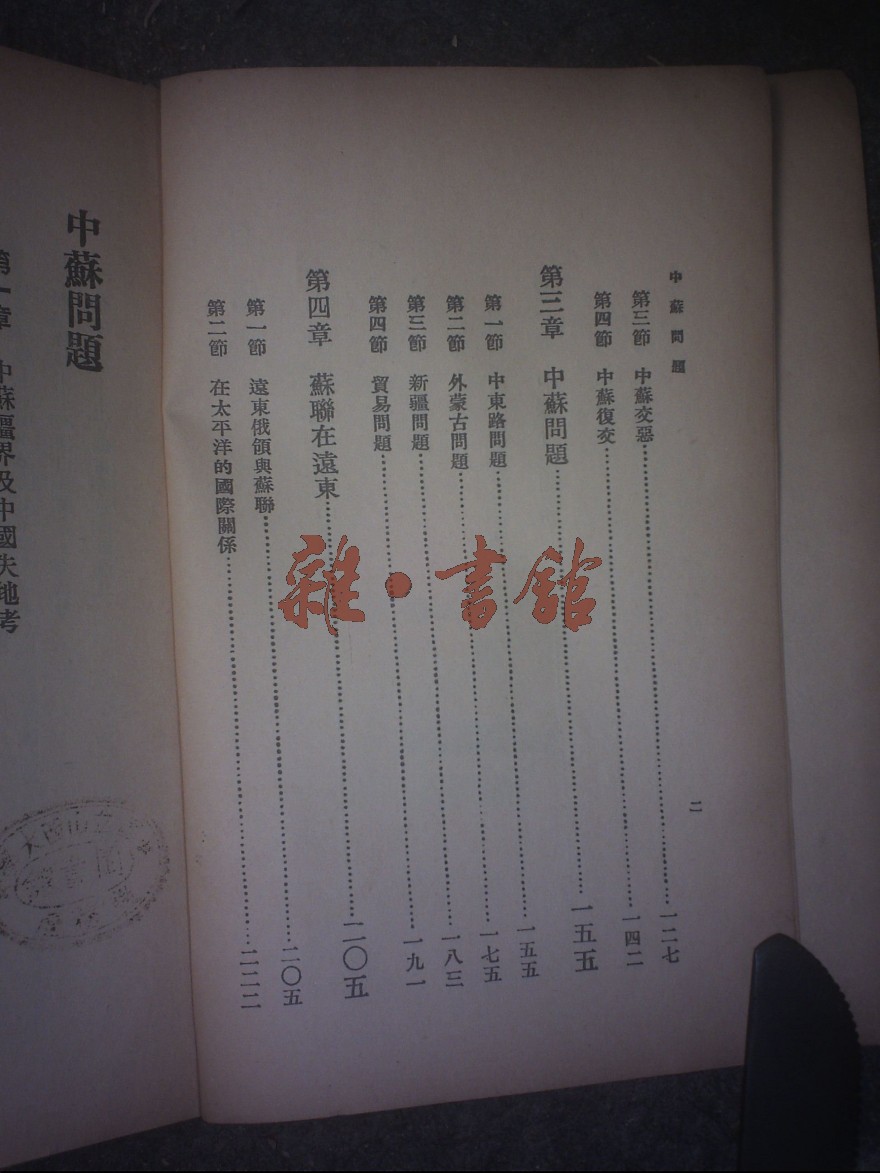 中蘇問題
二
第三節 中蘇交惡……一二七
第四節 中蘇復交……一四二
第三章 中蘇問題……一五五
第一節 中東路問題……一五五
第二節 外蒙古問題……一七五
第三節 新疆問題……一八三
第四節 貿易問題……一九一
第四章 蘇聯在遠東……二〇五
第一節 遠東俄領與蘇聯……二〇五
第二節 在太平洋的國際關係……二二二
雜·書館
中蘇問題
第一章 中蘇疆界及中國失地考